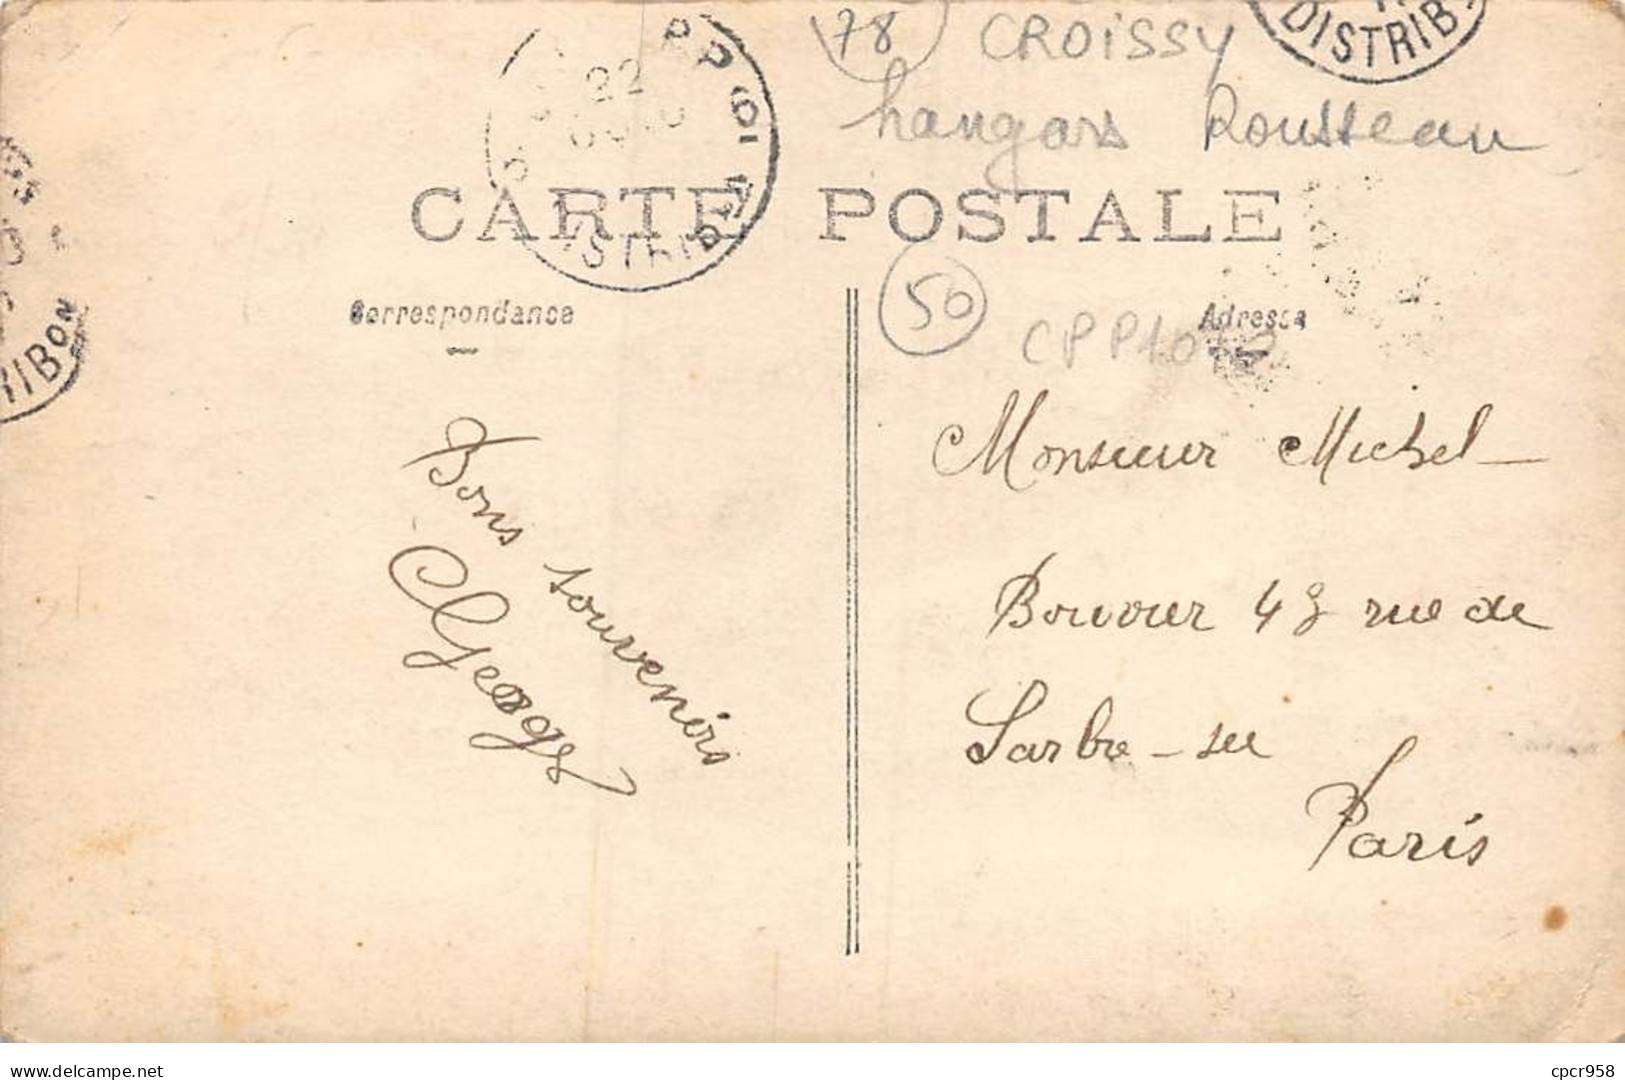 78 CROISSY
hangars Rousseau
22
DISTRIB
CARTE POSTALE
Correspondance
Adresse
50
Bons souvenirs
Georges
Monsieur Michel
Bouvier 43 rue de
Paris
RIBON
www.delcampe.net
cpcr958